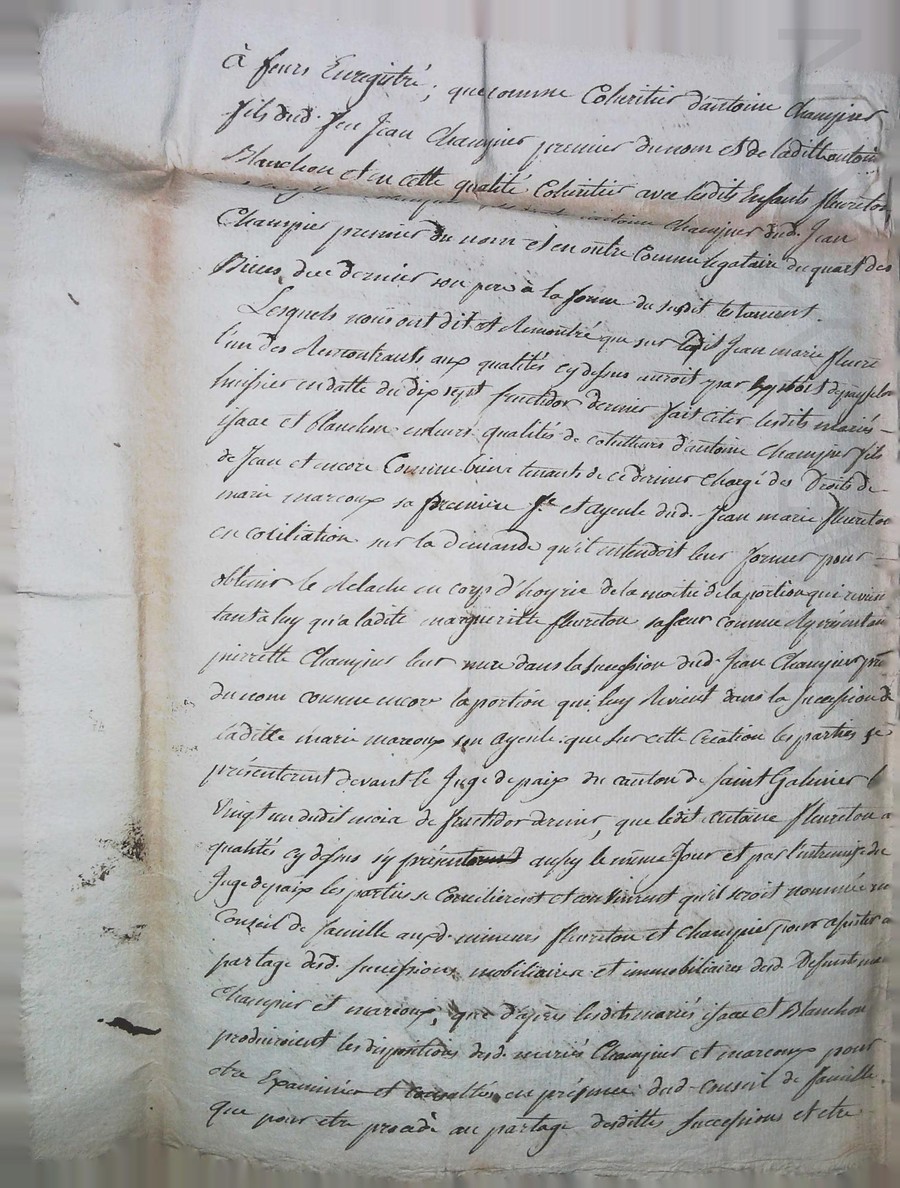 à feurs Enregistré; que comme Coheritier d'antoine Champier
fils dud. feu Jean Champier premier du nom et de laditte antoinette
Blanchon et en cette qualité Coheritier avec lesdits Enfants fleureton
antoine champier dud. Jean
Champier premier du nom et en outre Comme legataire du quart des
Biens de ce dernier son pere à la forme du susdit testament.
Lesquels nous ont dit et Remontré que sur ledit Jean marie fleure
l'un des Remontrants aux qualités cy dessus auroit par
huissier en datte du dix sept fructidor dernier fait citer lesdits mariés
isaac et Blanchon en leurs qualités de d'antoine Champier fils
de Jean et encore Comme bien tenants de ce dernier chargé des Droits de
marie marcoux sa premiere f.e et ayeule dud. Jean marie fleureton
en conciliation sur la demande qu'il entendoit leur former pour
obtenir le relache en corps d'hoyrie de la moitié de la portion qui revient
tant à luy qu'a ladite margueritte fleureton sa sœur comme Représentant
pierrette Champier leur mere dans la succession dud. Jean Champier pre
du nom comme encore la portion qui luy Revient dans la succession de
laditte marie marcoux son ayeule: que sur cette Citation les parties se
présenterent devant le Juge de paix du canton de Saint Galmier le
Vingt un dudit mois de fructidor dernier, que ledit antoine fleureton a
qualités cy dessus s'y présenta aussy le même Jour et par l'entremise du
Juge de paix les parties se Concilierent et convinrent qu'il seroit nommé un
Conseil de famille auxd. mineurs fleureton et Champier pour assister a
partage desd. successions mobiliaires et immobiliaires desd. Defunts
Champier et marcoux, que d'après lesdits mariés isaac et Blanchon
produiroient les dispositions desd. mariés Champier et marcoux pour
etre Examinées et consultées en présence dud. Conseil de famille.
que pour etre procédé au partage desdittes successions et etre